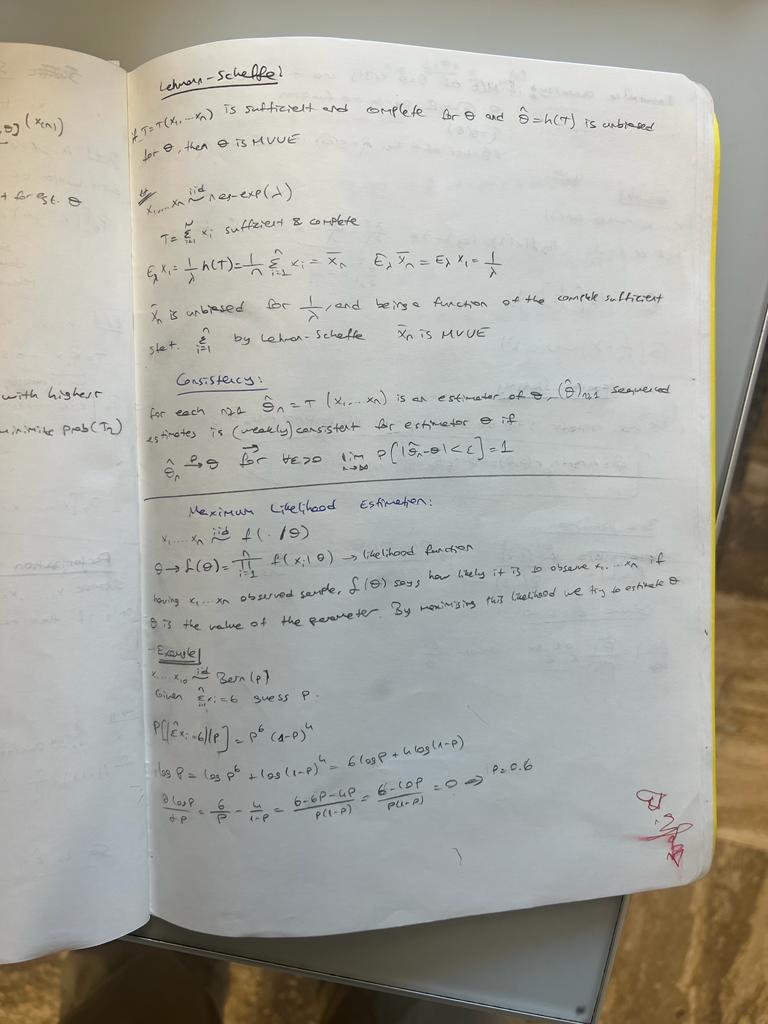 og(x(n))
+ for est. θ
with highest
minimize prob(T2)
Lehman-Scheffe:
If T=T(x1,...xn) is sufficient and complete for θ and θ̂=h(T) is unbiased
for θ, then θ is MVUE
x1,...xn iid~ neg-exp(λ)
T= Σ xi sufficient & complete
Eλ x1= 1/λ h(T)= 1/n Σ xi = x̄n Eλ x̄n = Eλ x1 = 1/λ
x̄n is unbiased for 1/λ, and being a function of the complete sufficient
stat. Σ by Lehman-Scheffe x̄n is MVUE
Consistency:
for each n≥1 θ̂n = T (x1,...xn) is an estimator of θ, (θ̂)n≥1 sequenced
estimates is (weakly) consistent for estimator θ if
θ̂n P→ θ for ∀ε>0 lim n→∞ P[|θ̂n-θ|<ε]=1
Maximum Likelihood Estimation:
x1,...xn iid~ f(·|θ)
θ→ L(θ)= Π f(xi|θ) → likelihood function
having x1...xn observed sample, L(θ) says how likely it is to observe x1,...xn if
θ is the value of the parameter. By maximising this likelihood we try to estimate θ
Example
x1...x10 iid~ Bern(p)
Given Σxi=6 guess p.
P[(Σxi=6)|p] = p^6 (1-p)^4
log P = log p^6 + log (1-p)^4 = 6 log p + 4 log(1-p)
∂log P/∂p = 6/p - 4/1-p = 6-6p-4p/p(1-p) = 6-10p/p(1-p) = 0 => p=0.6